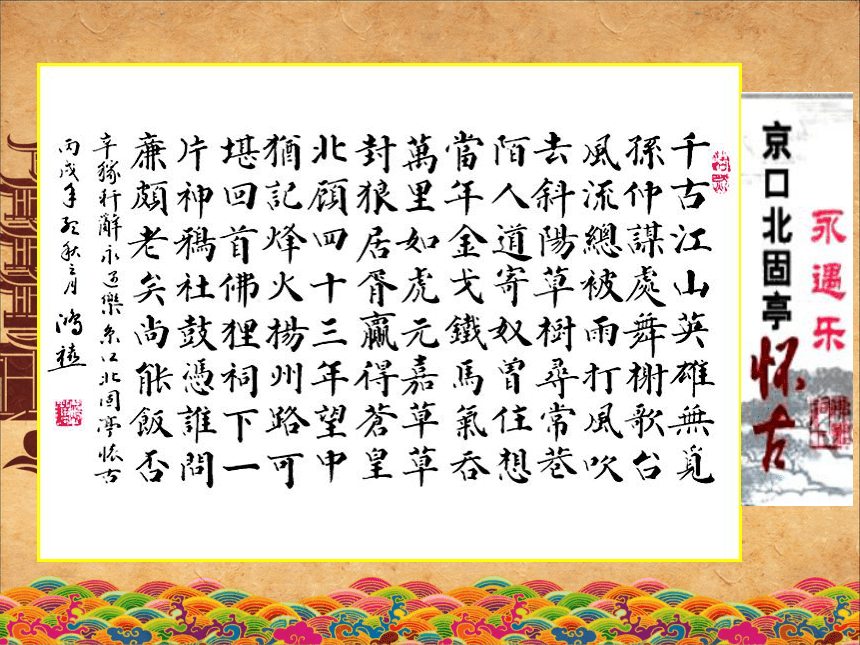 永遇乐
京口北固亭
怀古
千古江山英雄無覓
孫仲謀處舞榭歌台
風流總被雨打風吹
去斜陽草樹尋常巷
陌人道寄奴曾住想
當年金戈鐵馬氣吞
萬里如虎元嘉草草
封狼居胥贏得蒼皇
北顧四十三年望中
猶記烽火揚州路可
堪回首佛狸祠下一
片神鴉社鼓憑誰問
廉頗老矣尚能飯否
辛稼軒辭永遇樂京口北固亭懷古
丙戌年秋月